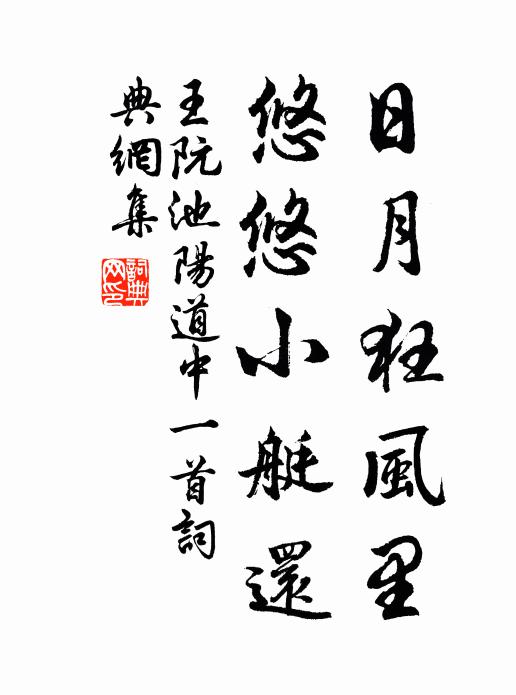 日月狂風里
悠悠小艇還
王阮池陽道中一首詞
典網集
詞典
网印